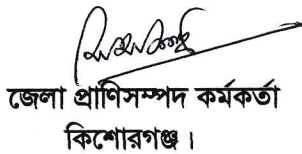 জেলা প্রাণিসম্পদ কর্মকর্তা
কিশোরগঞ্জ।